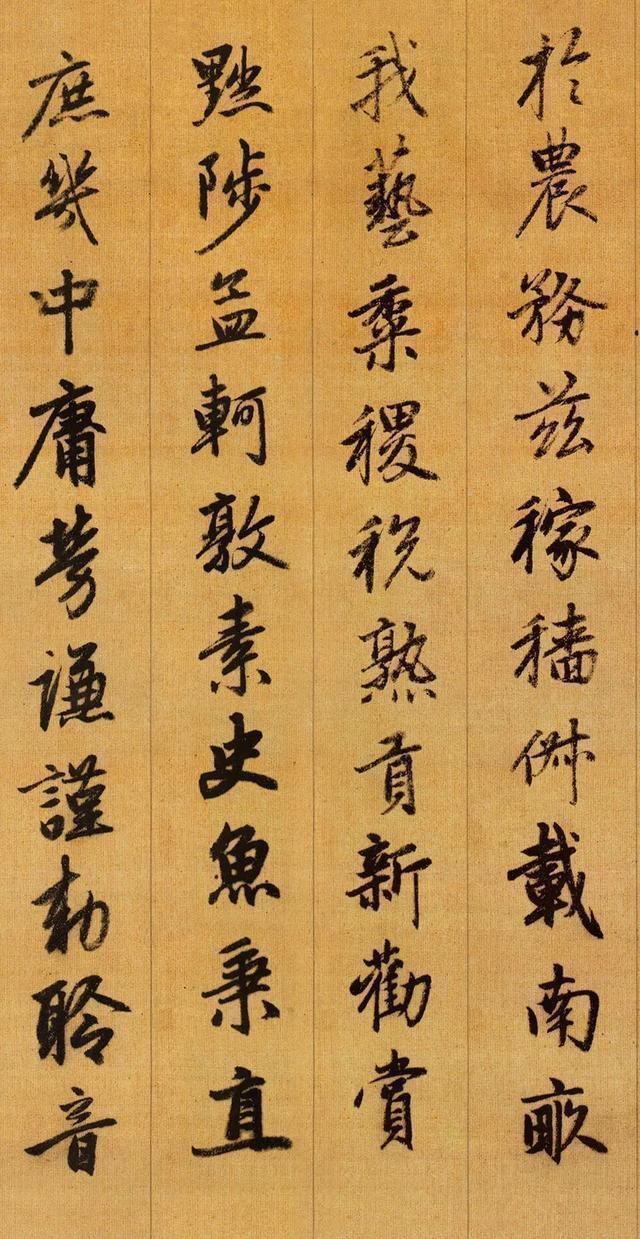 於農務茲稼穡俶載南畝
我藝黍稷稅熟貢新勸賞
黜陟孟軻敦素史魚秉直
庶幾中庸勞謙謹勅聆音